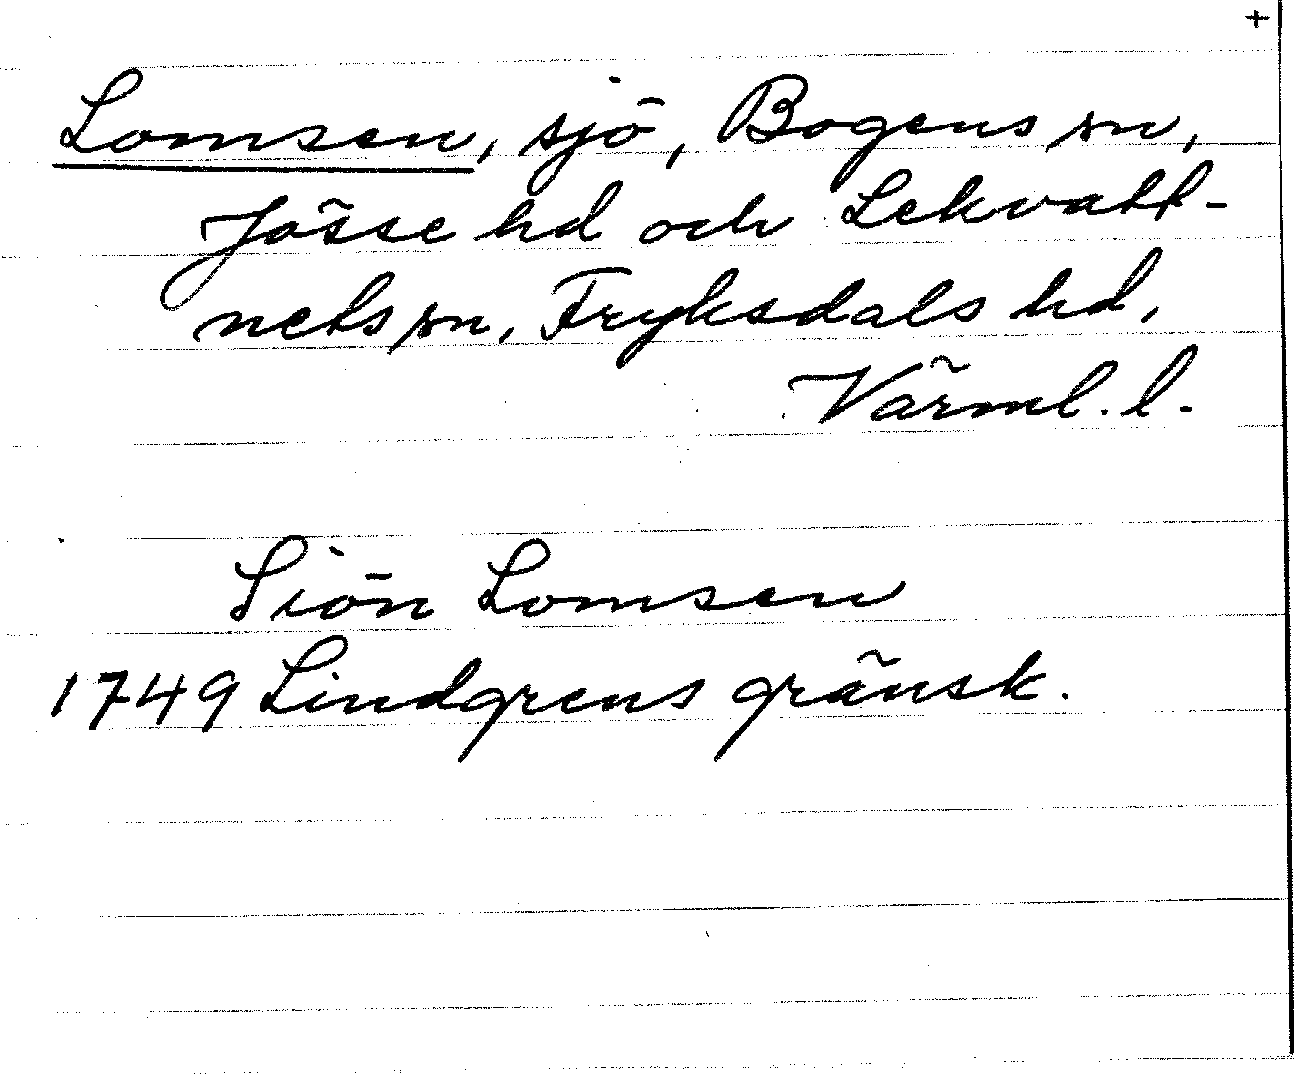 +
Lomsen, sjö, Bogens sn,
Jösse hd och Lekvatt-
nets sn, Fryksdals hd,
Värml. l.
Siön Lomsen
1749 Lindgrens gränsk.